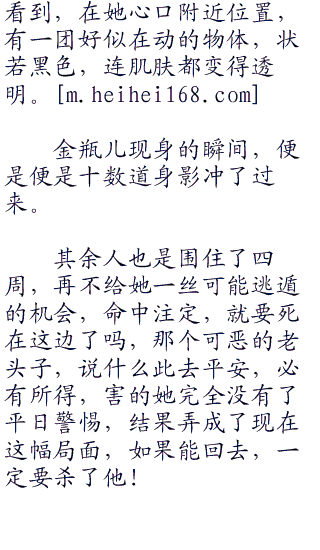 看到，在她心口附近位置，
有一团好似在动的物体，状
若黑色，连肌肤都变得透
明。[m.heihei168.com]
金瓶儿现身的瞬间，便
是便是十数道身影冲了过
来。
其余人也是围住了四
周，再不给她一丝可能逃遁
的机会，命中注定，就要死
在这边了吗，那个可恶的老
头子，说什么此去平安，必
有所得，害的她完全没有了
平日警惕，结果弄成了现在
这幅局面，如果能回去，一
定要杀了他！